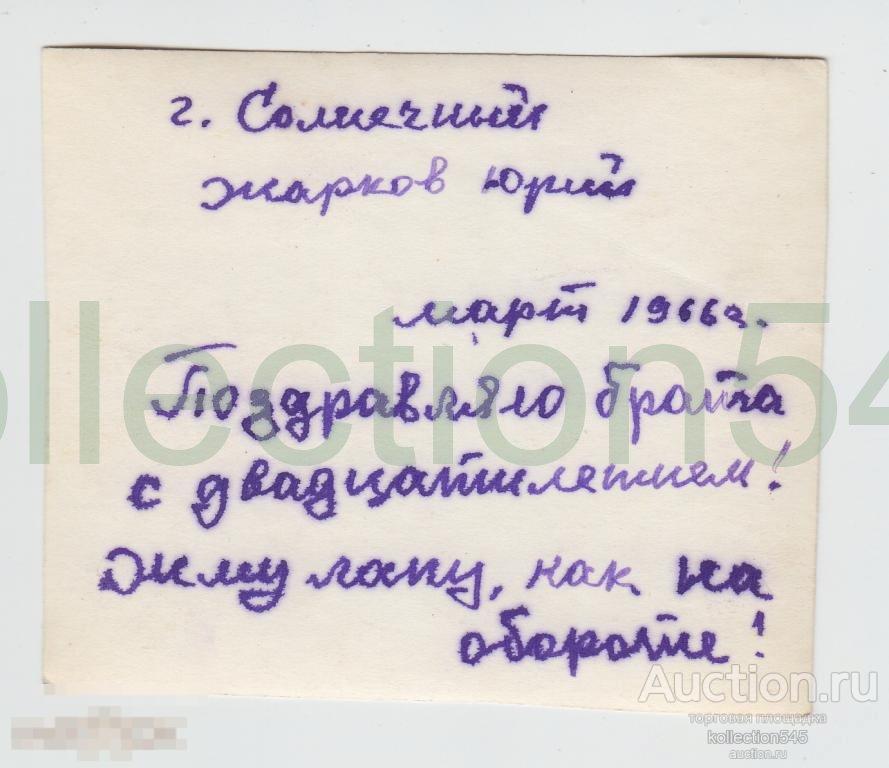 г. Солнечный
Жарков Юрий
март 1966г.
Поздравляю брата
с двадцатилетием!
Жму лапу, как на
обороте!
ollection54
Auction.ru
торговая площадка
kollection545
auction.ru